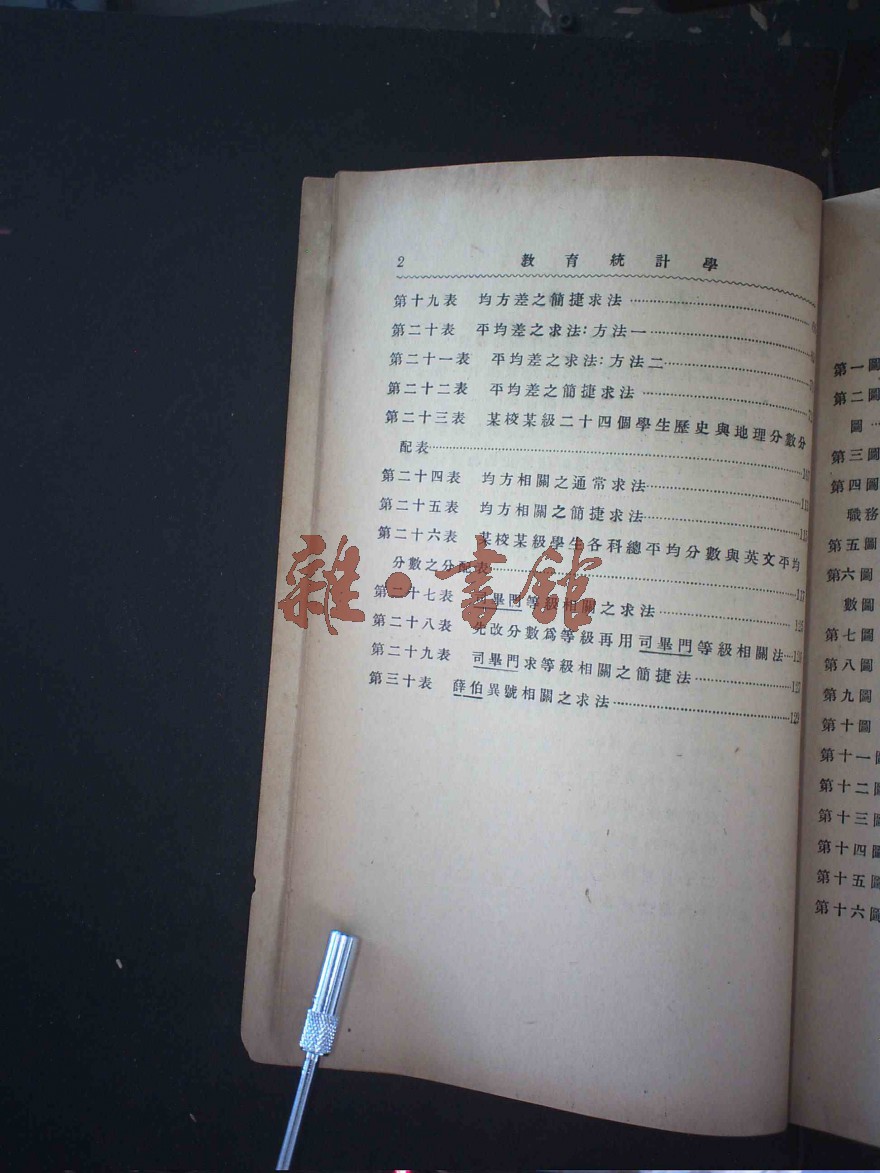 2 教育統計學
第十九表 均方差之簡捷求法
第二十表 平均差之求法:方法一
第二十一表 平均差之求法:方法二
第二十二表 平均差之簡捷求法
第二十三表 某校某級二十四個學生歷史與地理分數分
配表
第二十四表 均方相關之通常求法
第二十五表 均方相關之簡捷求法
第二十六表 某校某級學生各科總平均分數與英文平均
分數之分配表 117
第二十七表 司畢門等級相關之求法 125
第二十八表 先改分數爲等級再用司畢門等級相關法 126
第二十九表 司畢門求等級相關之簡捷法 127
第三十表 薛伯異號相關之求法 129
雜·書館
第一圖
第二圖
圖
第三圖
第四圖
職務
第五圖
第六圖
數圖
第七圖
第八圖
第九圖
第十圖
第十一圖
第十二圖
第十三圖
第十四圖
第十五圖
第十六圖